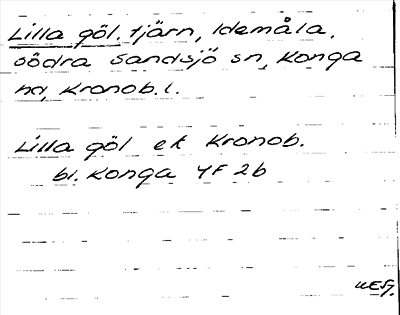 Lilla göl. tjärn, Idemåla.
Södra Sandsjö sn, Konga
hd, Kronob. l.
Lilla göl ek Kronob.
bl. Konga 4F 2b